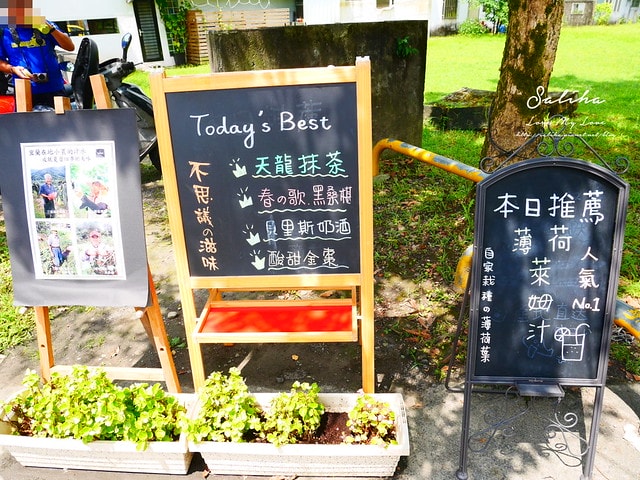 Today's Best
不思議の滋味
天龍抹茶
春の歌.黑桑椹
貝里斯奶酒
酸甜金棗
本日推薦
薄荷萊姆汁
人氣 No.1
自家栽種の薄荷葉
Saliha
Love My Love